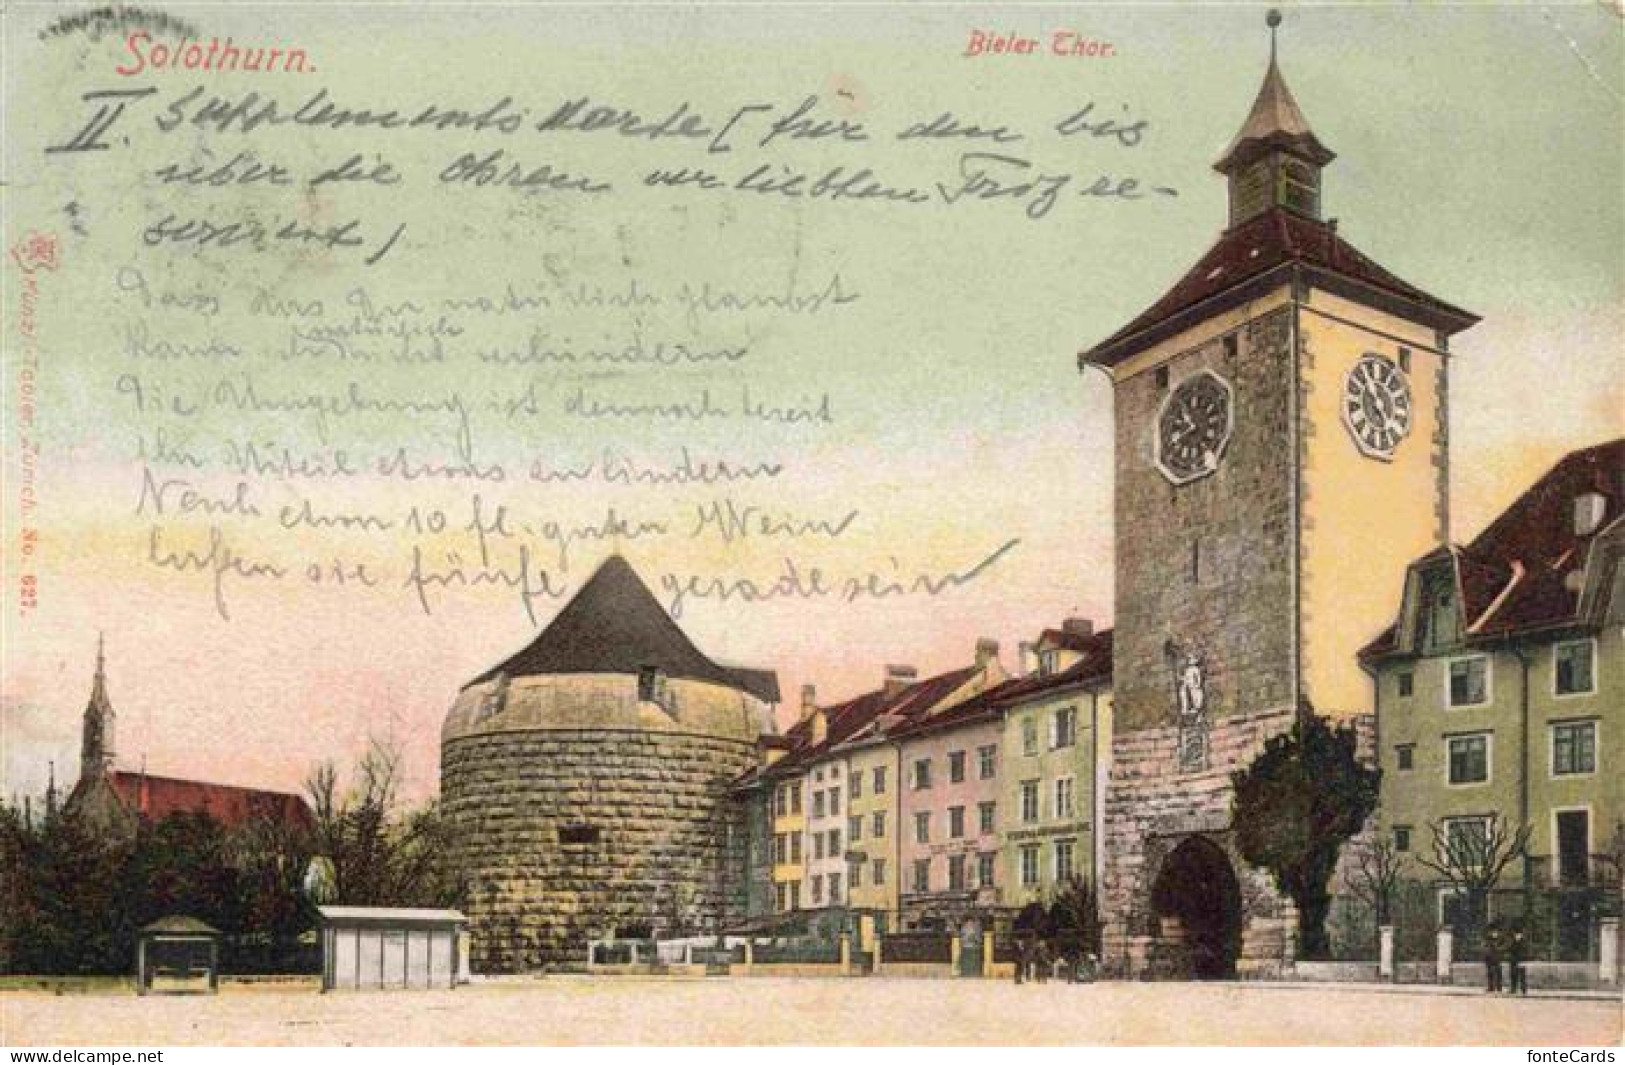 Solothurn.
Bieler Thor.
II. Supplements Karte [für den bis
über die Ohren verliebten Fritz re-
serviert)
Dass das Du natürlich glaubst
Kann ich natürlich nicht verhindern
Die Umgebung ist dennoch bereit
Ihr Urteil etwas zu lindern
Nenh etwa 10 fl. guten Wein
lassen sie fünfe gerad sein
Künzl-Tobler Zürich. No. 627.
www.delcampe.net
fonteCards